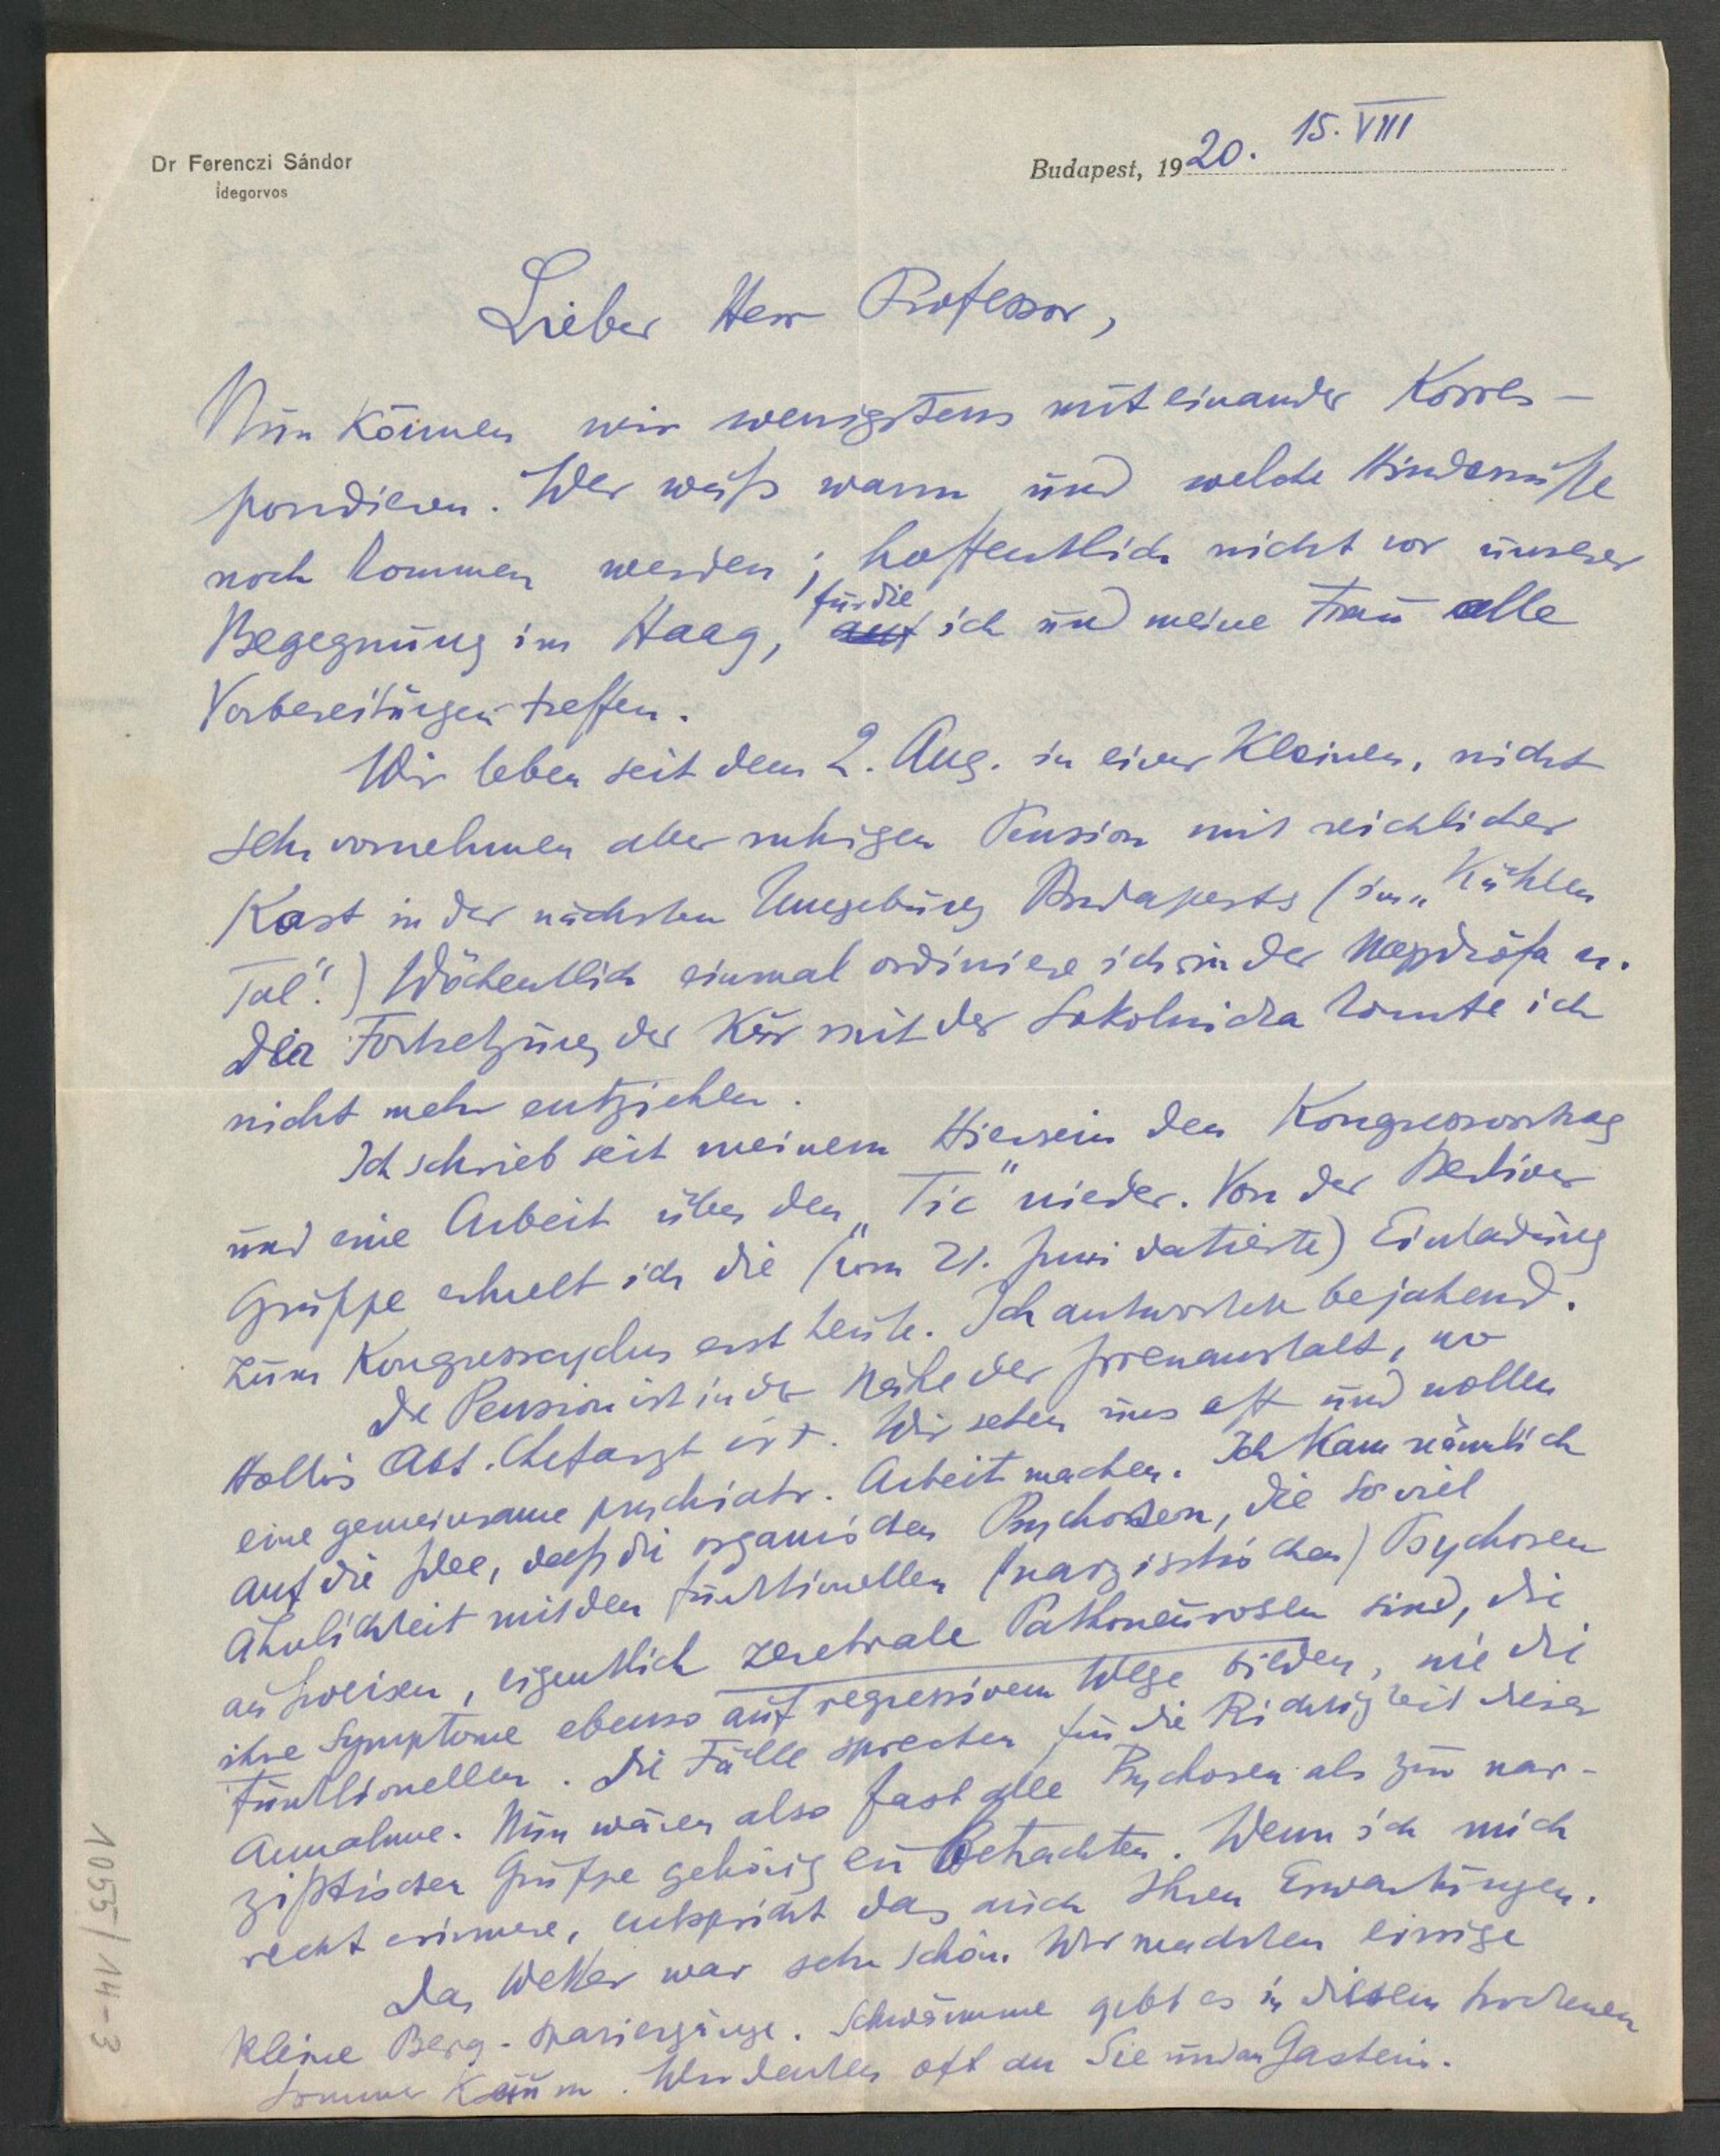 Dr Ferenczi Sándor
idegorvos
Budapest, 1920. 15. VIII
Lieber Herr Professor,
Nun können wir wenigstens miteinander korres-
pondieren. Wer weiß wann und welche Hindernisse
noch kommen werden; hoffentlich nicht vor unserer
Begegnung im Haag, für die ich und meine Frau alle
Vorbereitungen treffen.
Wir leben seit dem 2. Aug. in einer kleinen, nicht
sehr vornehmen aber ruhigen Pension mit reichlicher
Kost in der nächsten Umgebung Budapests (im „Kühlen
Tal“.) Wöchentlich einmal ordiniere ich in der Nagydiófa u.
der Fortsetzung der Kur mit der Sokolnicka konnte ich
nicht mehr entziehen.
Ich schrieb seit meinem Hiersein den Kongressvortrag
und eine Arbeit über den „Tic“ nieder. Von der Berliner
Gruppe erhielt ich die (vom 21. Juni datierte) Einladung
zum Kongresscyclus erst heute. Ich antwortete bejahend.
Die Pension ist in der Nähe der Irrenanstalt, wo
Hollós Abt. Chefarzt ist. Wir sehen uns oft und wollen
eine gemeinsame psychiatr. Arbeit machen. Ich kam nämlich
auf die Idee, daß die organischen Psychosen, die so viel
Ähnlichkeit mit den funktionellen (narzisstischen) Psychosen
aufweisen, eigentlich zerebrale Pathoneurosen sind, die
ihre Symptome ebenso auf regressivem Wege bilden, wie die
funktionellen. Die Fälle sprechen für die Richtigkeit dieser
Annahme. Nun wären also fast alle Psychosen als zur nar-
zißtischen Gruppe gehörig zu betrachten. Wenn ich mich
recht erinnere, entspricht das auch Ihren Erwartungen.
Das Wetter war sehr schön. Wir machten einige
kleine Berg-spaziergänge. Schwämme gibt es in diesem trockenen
Sommer kaum. Wir denken oft an Sie und an Gastein.
1055/14-3